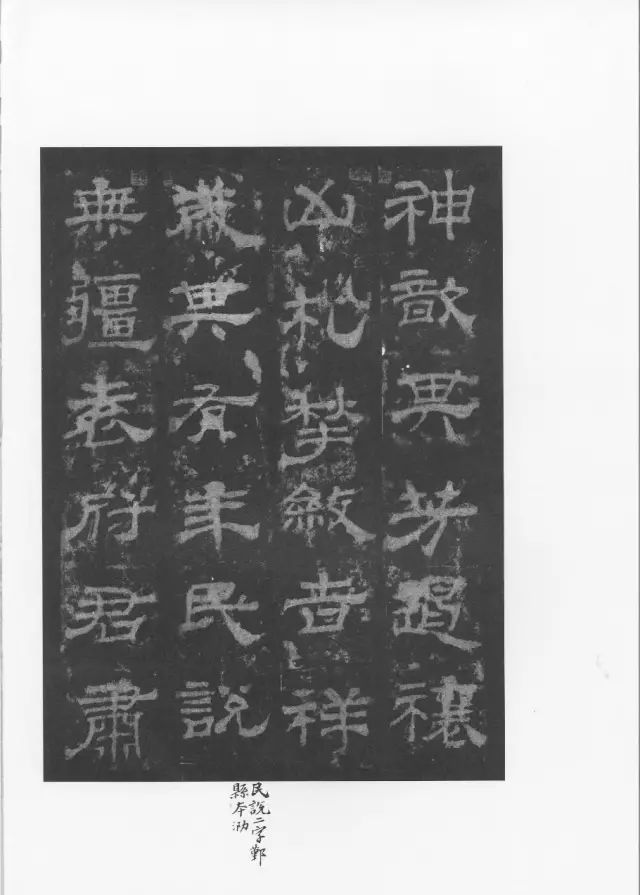 神歆其芳遏禳
凶札揫斂吉祥
歲其有年民說
無疆袁府君肅
民說二字鄞
縣本泐